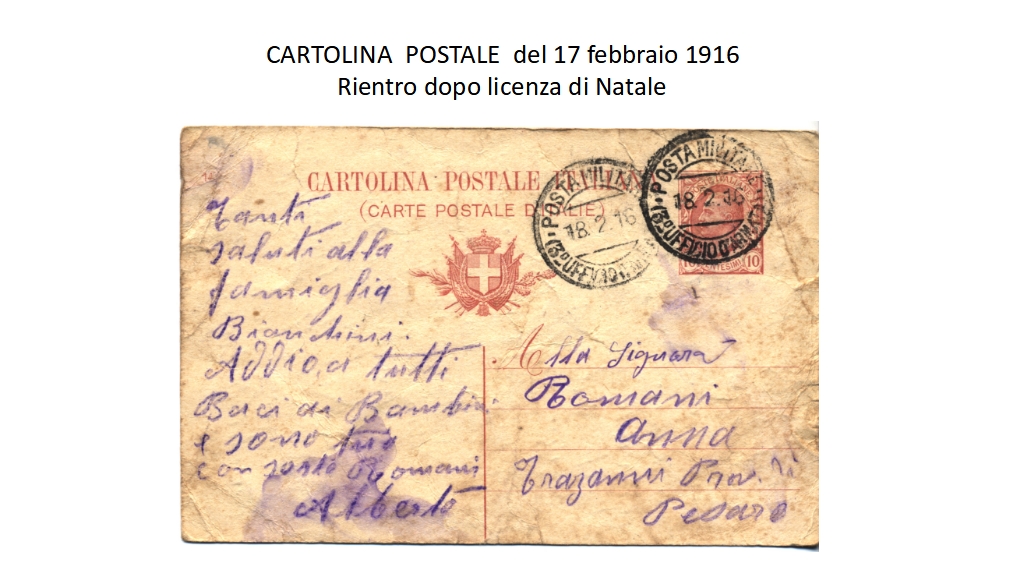 CARTOLINA POSTALE del 17 febbraio 1916
Rientro dopo licenza di Natale
CARTOLINA POSTALE ITALIANA
(CARTE POSTALE D'ITALIE)
POSTA MILITARE
18.2.16
(3° UFFICIO D'ARMATA)
POSTA MILITARE
18.2.16
(3° UFFICIO D'ARMATA)
CENTESIMI 10
Tanti
saluti alla
famiglia
Bianchini.
Addio a tutti
Baci ai Bambini
e sono tuo
Romani
Alberto
Alla Signora
Romani
Anna
Trazanni Prov. di
Pesaro